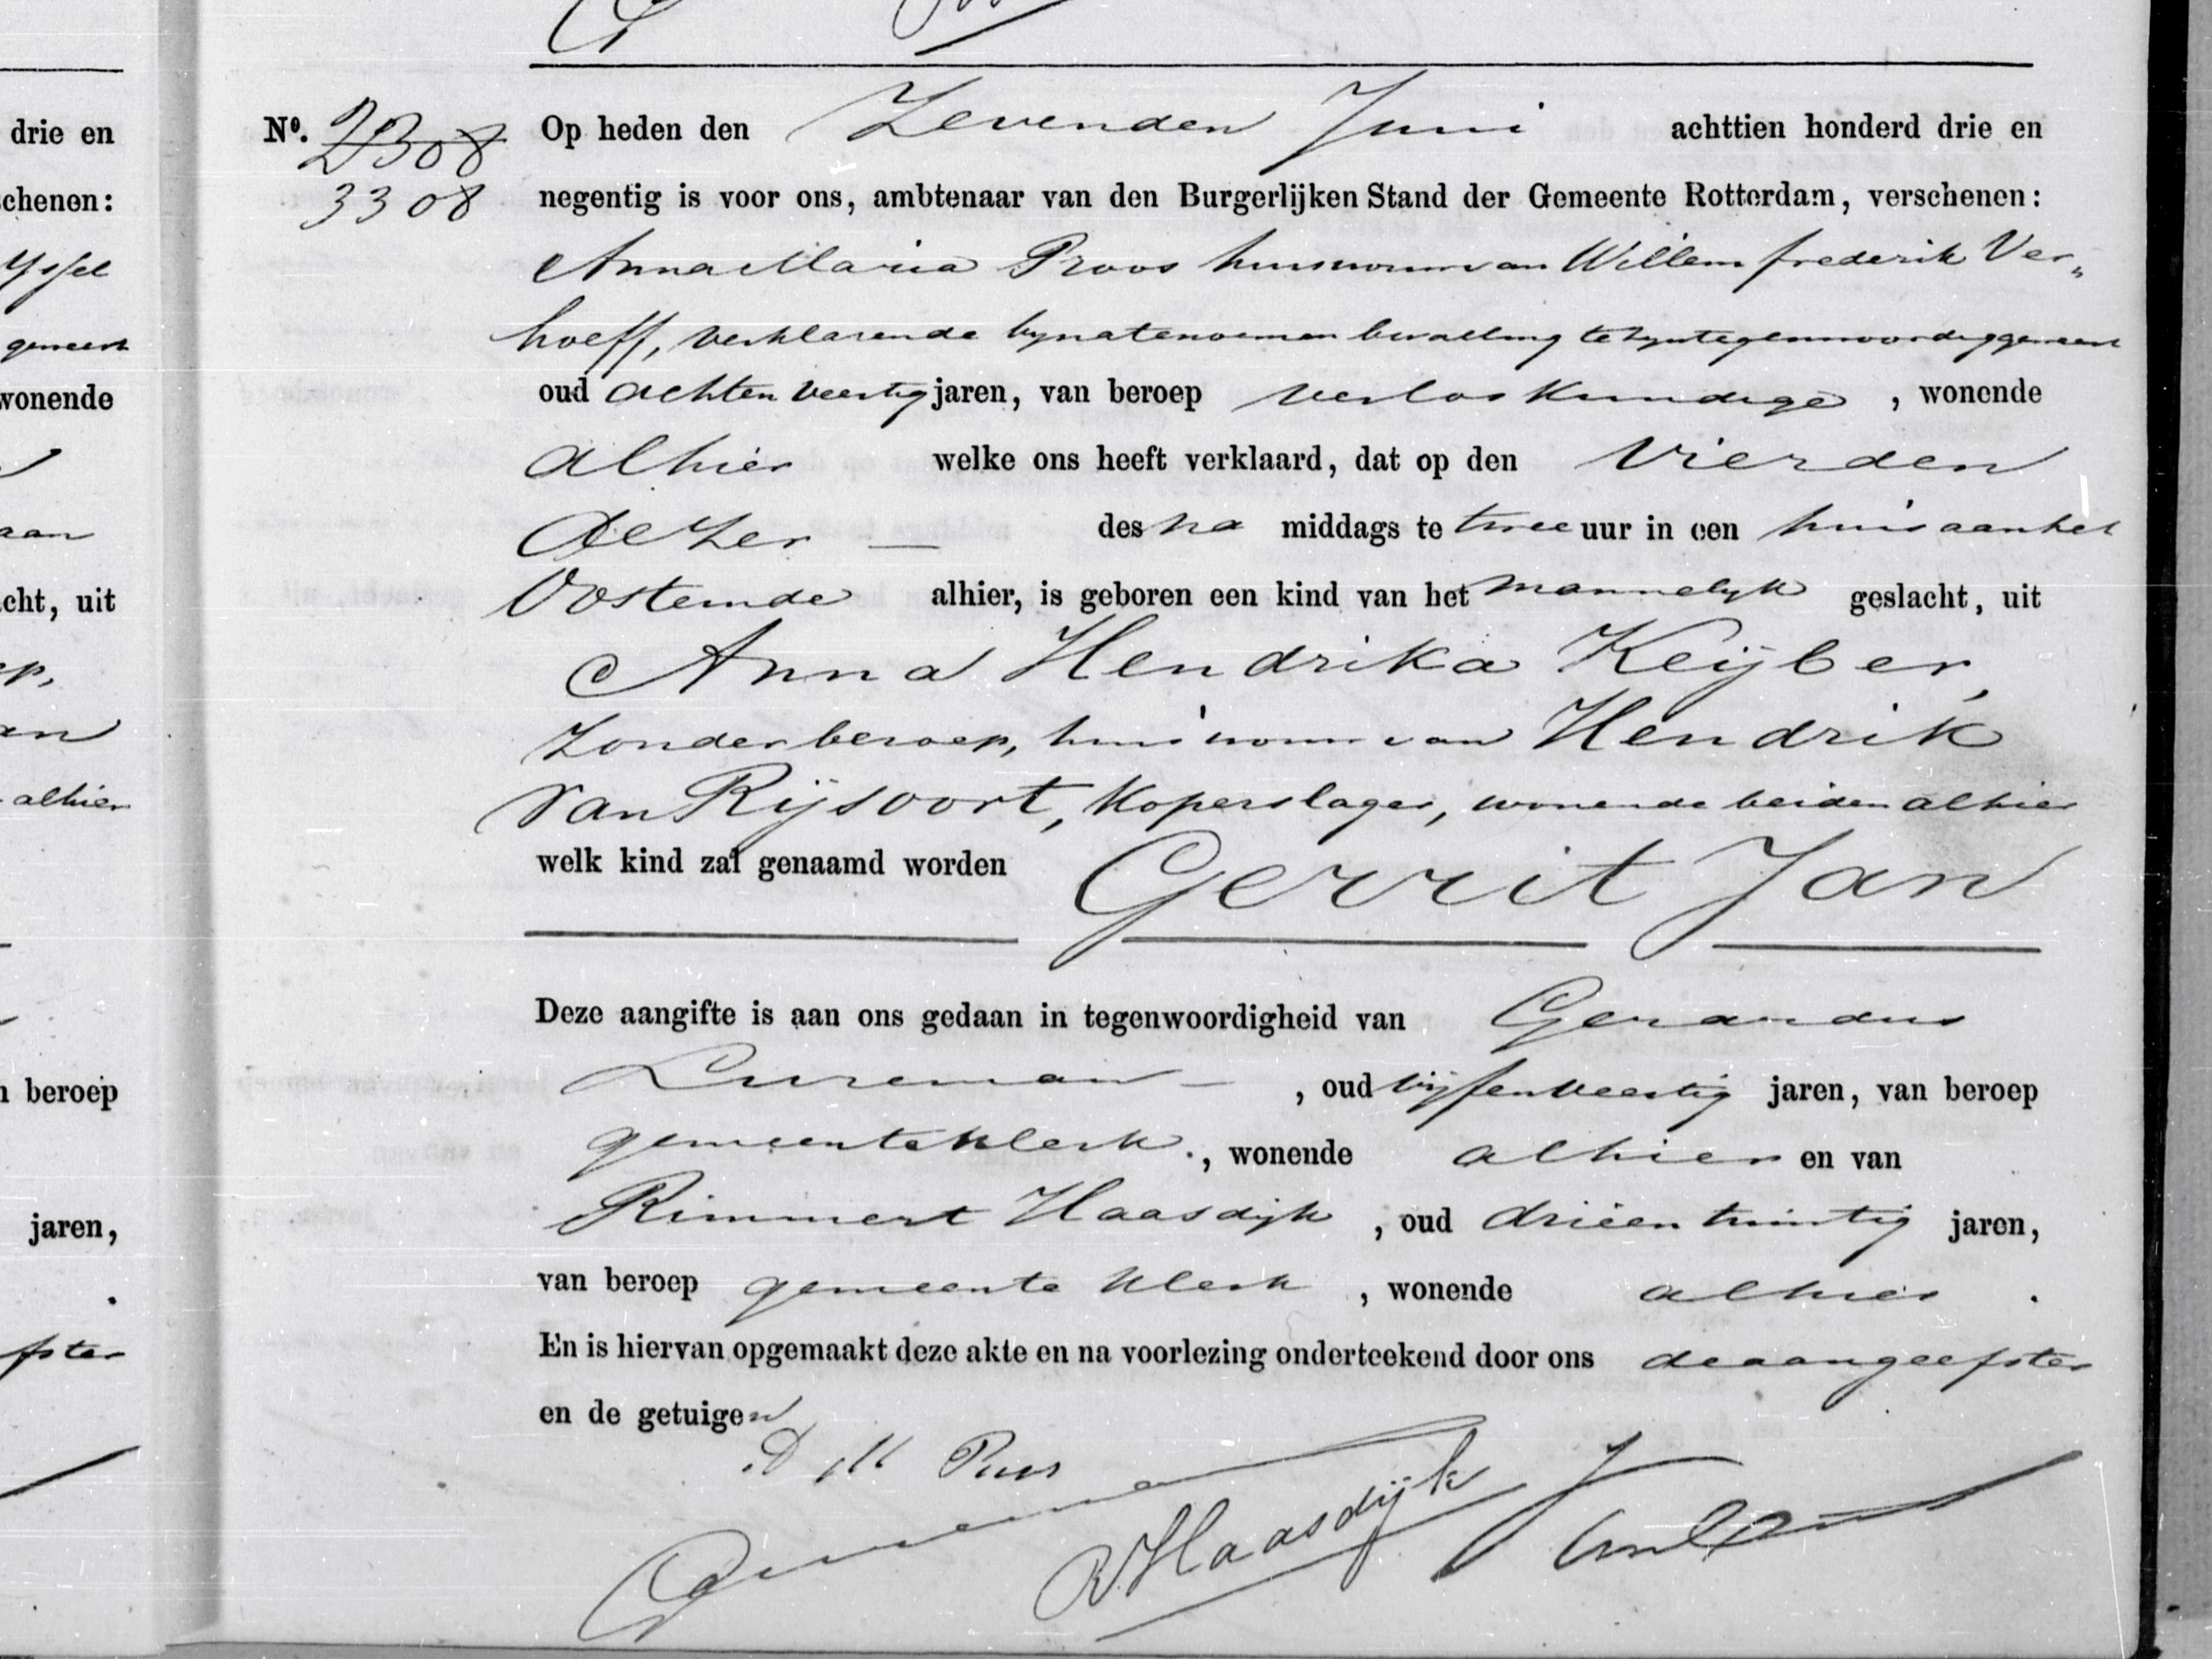 drie en
schenen:
Yssel
gemeent
wonende
aan
acht, uit
ep,
an
alhier
n beroep
jaren,
fster
No. 2308
3308
Op heden den Zevenden Juni achttien honderd drie en
negentig is voor ons, ambtenaar van den Burgerlijken Stand der Gemeente Rotterdam, verschenen:
Anna Maria Proos huisvrouw van Willem frederik Ver„
hoeff, verklarende bij na te noemen bevalling te zijn tegenwoordig geweest
oud acht en veertig jaren, van beroep verloskundige, wonende
alhier welke ons heeft verklaard, dat op den Vierden
dezer — des na middags te twee uur in een huis aan het
Oosteinde alhier, is geboren een kind van het mannelijk geslacht, uit
Anna Hendrika Keijber,
zonder beroep, huisvrouw van Hendrik
van Rijsoort, Koperslager, wonende beiden alhier
welk kind zal genaamd worden Gerrit Jan
Deze aangifte is aan ons gedaan in tegenwoordigheid van Gerardus
Lureman —, oud vijf en veertig jaren, van beroep
gemeenteklerk., wonende alhier en van
Rimmert Haasdijk, oud drieen twintig jaren,
van beroep gemeente klerk, wonende alhier.
En is hiervan opgemaakt deze akte en na voorlezing onderteekend door ons de aangeefster
en de getuigen
R Haasdijk